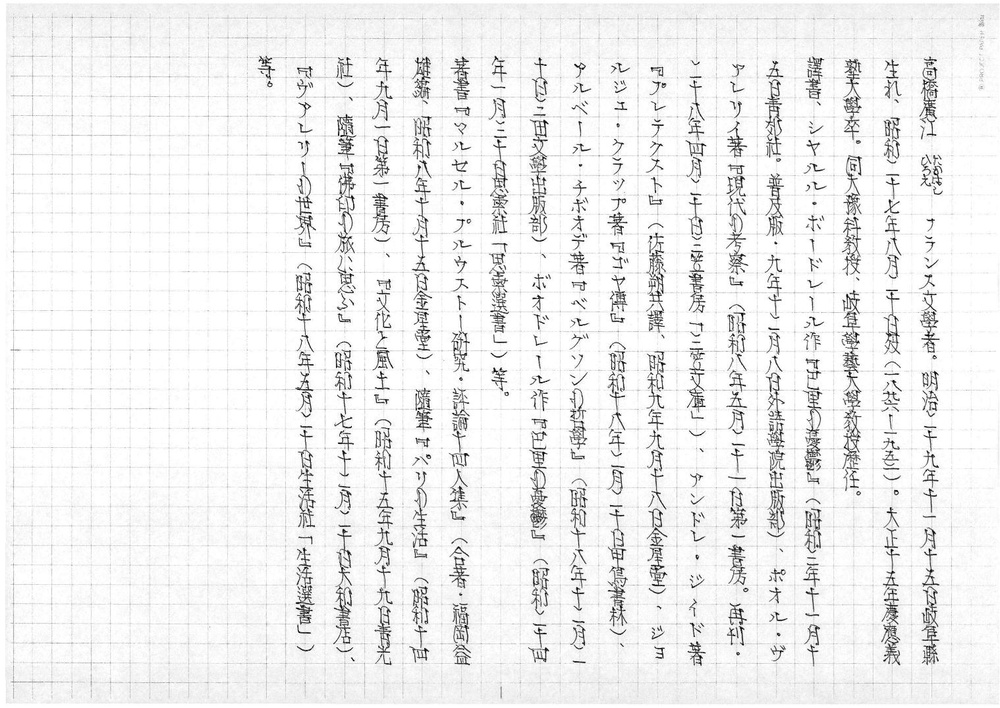 高橋廣江 たかはし ひろえ フランス文學者。明治二十九年十一月十五日岐阜縣
生れ、昭和二十七年八月二十日歿（一八九六—一九五二）。大正十五年慶應義
塾大學卒。同大豫科教授、岐阜學藝大學教授歴任。
譯書、シャルル・ボードレール作『巴里の憂鬱』（昭和三年十一月十
五日靑郊社。普及版・九年十二月八日外語學院出版部）、ポオル・ヴ
アレリイ著『現代の考察』（昭和八年五月二十一日第一書房。再刊・
二十八年四月二十日三笠書房「三笠文庫」）、アンドレ・ジイド著
『プレテクスト』（佐藤朔共譯、昭和九年九月十八日金星堂）、ジヨ
ルジュ・クラップ著『ゴヤ傳』（昭和十八年二月二十日甲鳥書林）、
アルベール・チボオデ著『ベルグソンの哲學』（昭和十八年十二月二
十日三田文學出版部）、ボオドレール作『巴里の憂鬱』（昭和二十四
年一月三十日思索社「思索選書」）等。
著書『マルセル・プルウスト—硏究・評論十四人集』（合著・福岡益
雄編、昭和八年十月十五日金星堂）、隨筆『パリの生活』（昭和十四
年九月一日第一書房）、『文化と風土』（昭和十五年九月十九日靑光
社）、隨筆『佛印の旅に思ふ』（昭和十七年十二月二十日大和書店）、
『ヴアレリーの世界』（昭和十八年五月二十日生活社「生活選書」）
等。